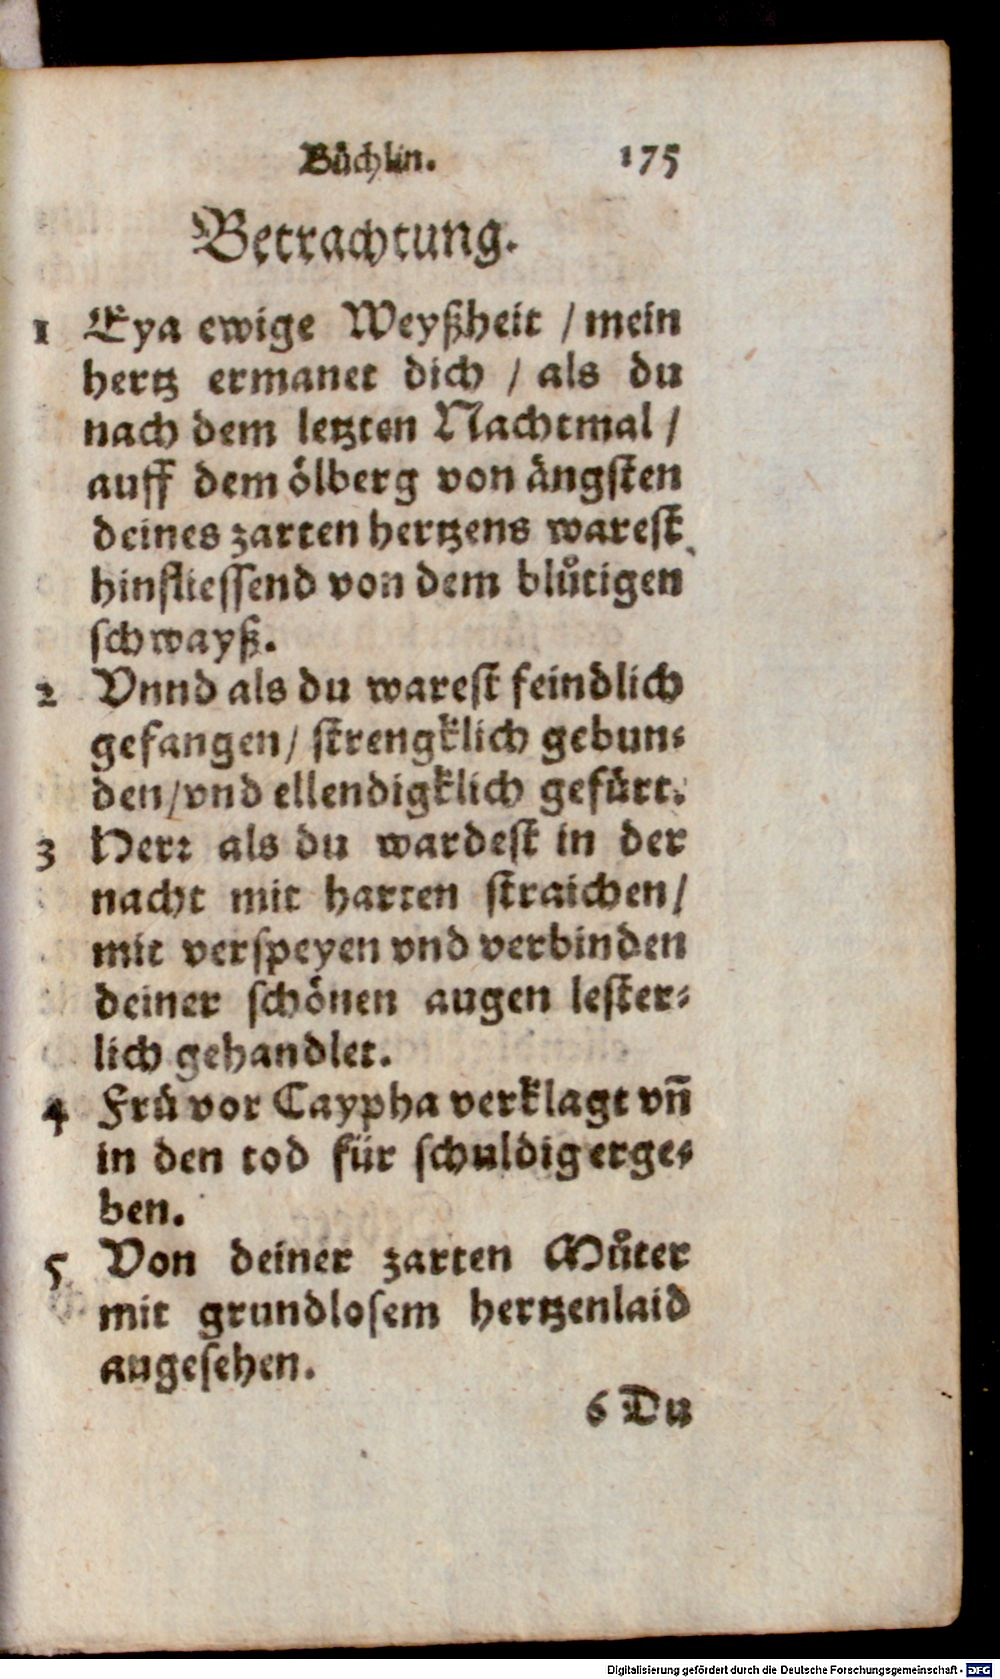 Büchlin. 175
Betrachtung.
1 Eya ewige Weyßheit / mein
hertz ermanet dich / als du
nach dem letzten Nachtmal /
auff dem ölberg von ängsten
deines zarten hertzens warest
hinfliessend von dem blůtigen
schwayß.
2 Vnnd als du warest feindlich
gefangen / strengklich gebun⸗
den / vnd ellendigklich gefürt.
3 Herꝛ als du wardest in der
nacht mit harten straichen /
mit verspeyen vnd verbinden
deiner schönen augen lester⸗
lich gehandlet.
4 Frü vor Caypha verklagt vn̄
in den tod für schuldig erge⸗
ben.
5 Von deiner zarten Můter
mit grundlosem hertzenlaid
angesehen.
6 Du
Digitalisierung gefördert durch die Deutsche Forschungsgemeinschaft - DFG